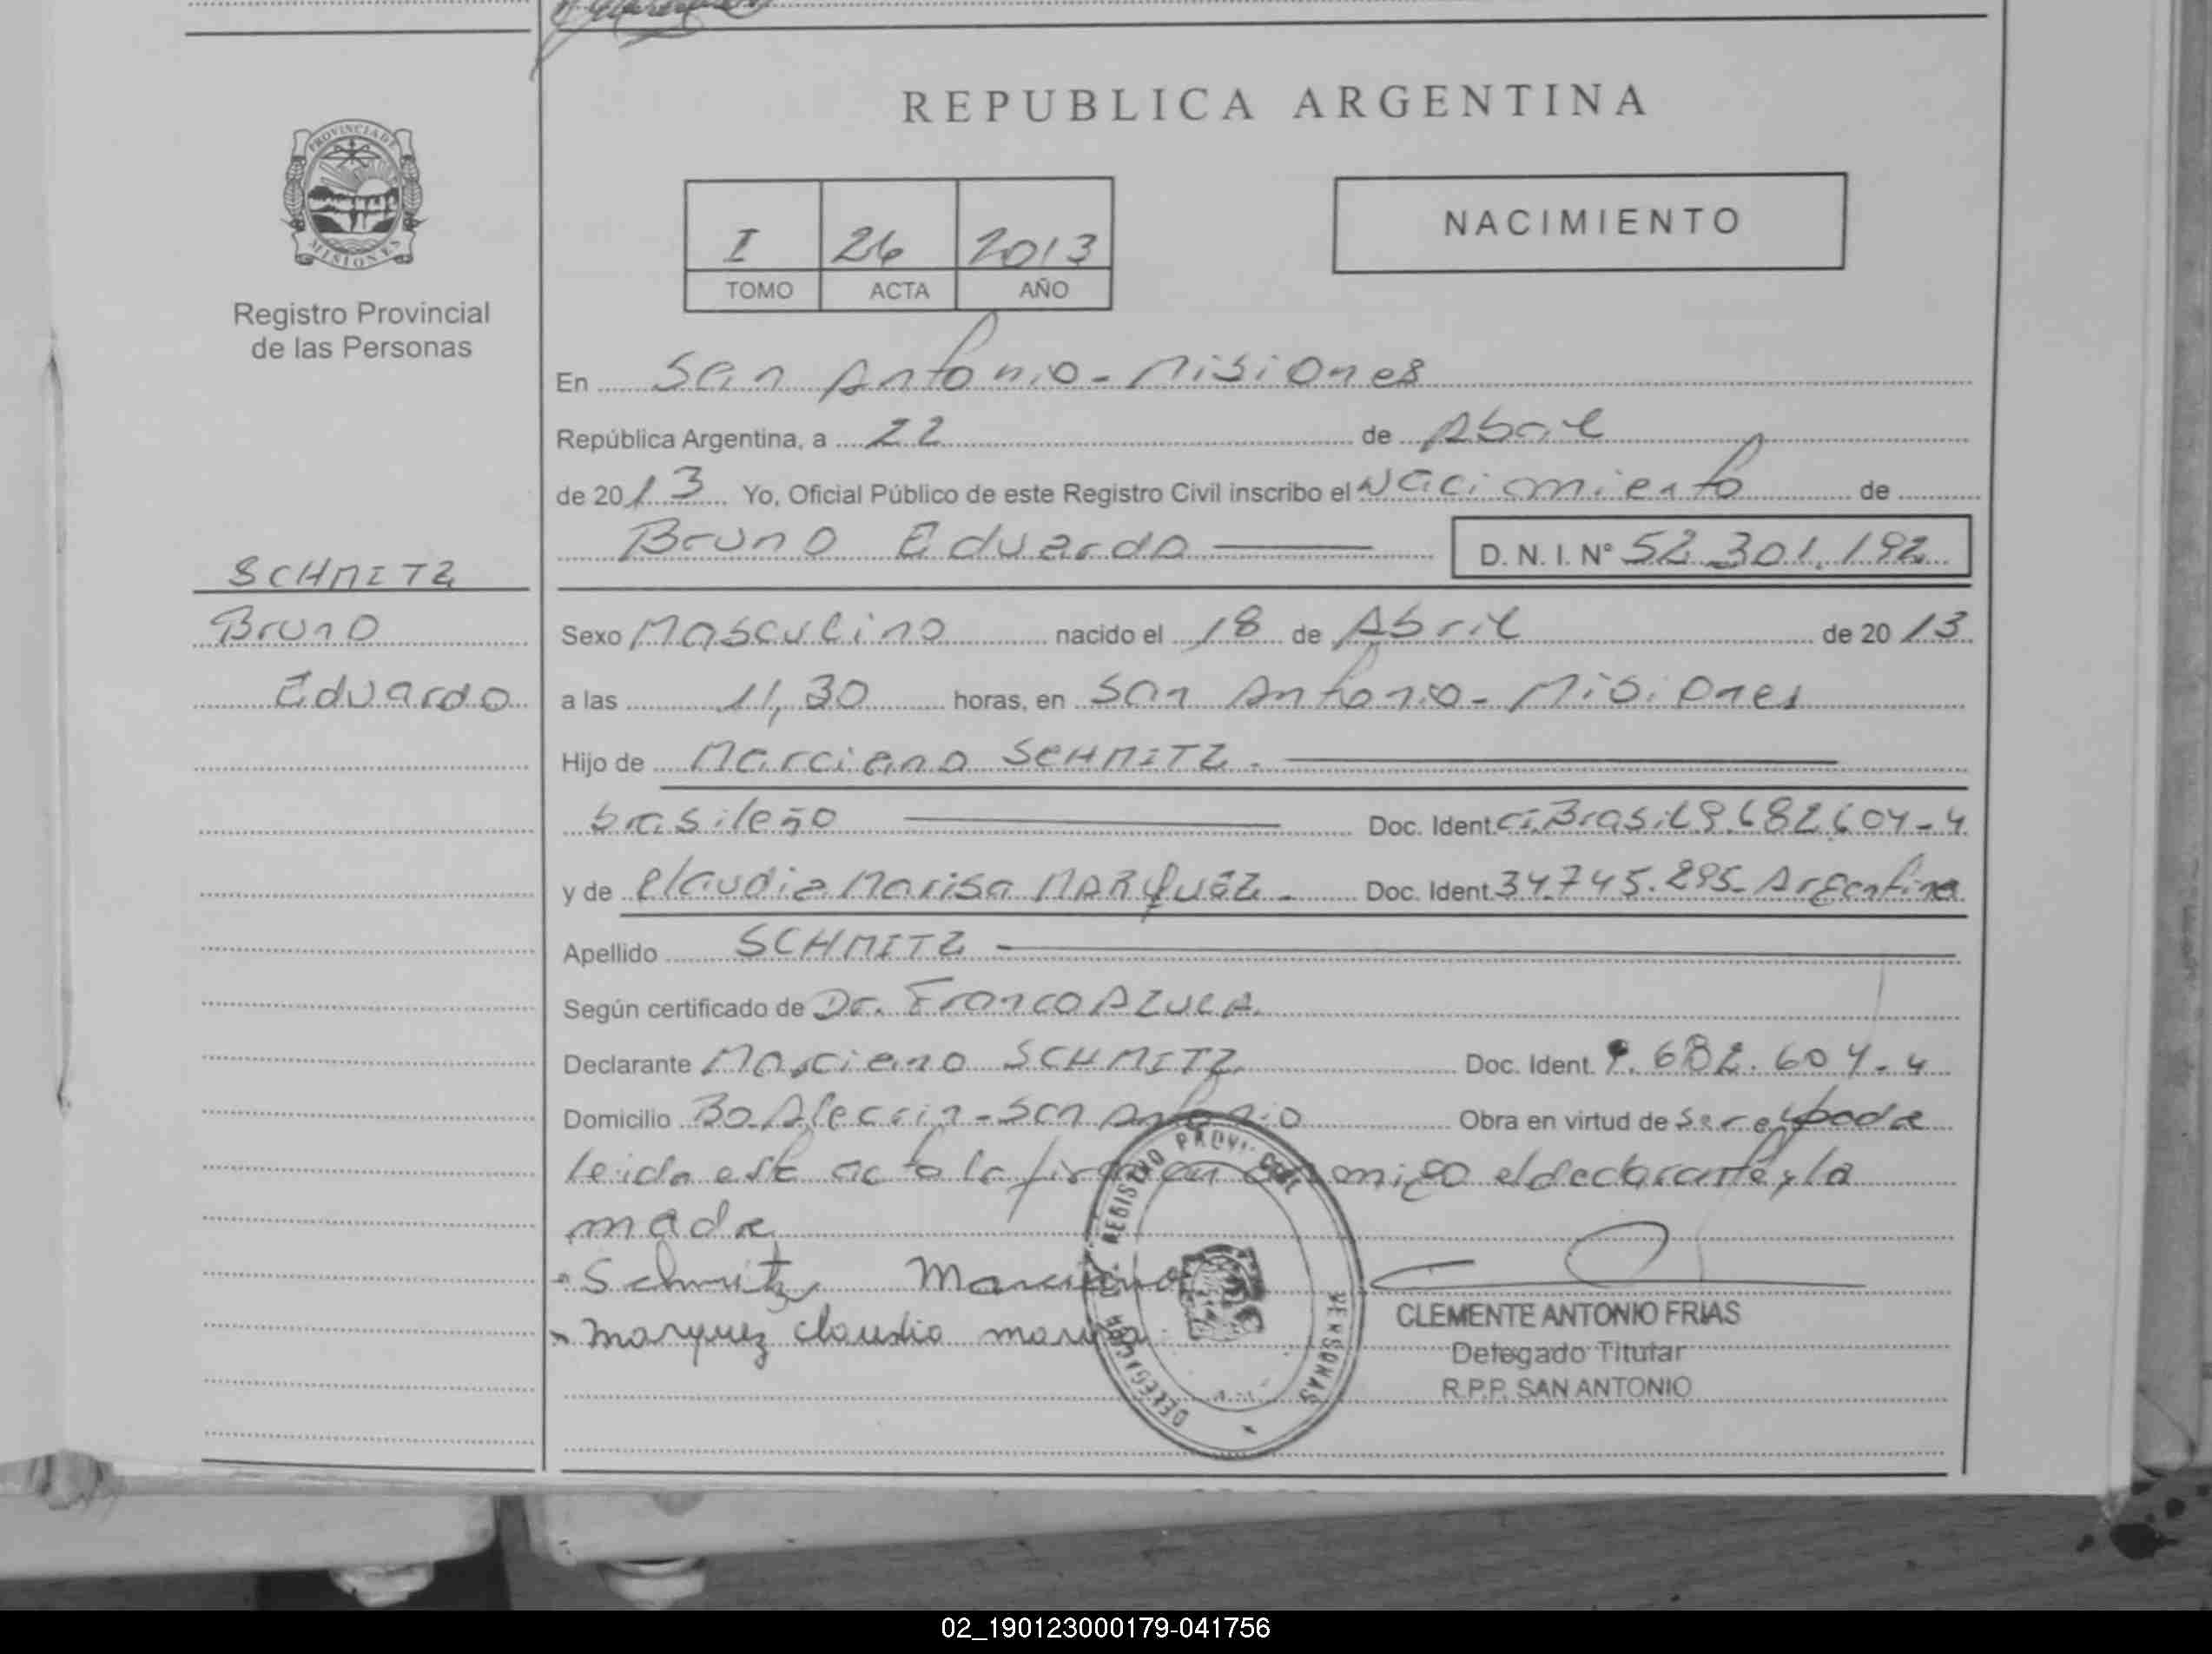 REPUBLICA ARGENTINA
PROVINCIA DE
MISIONES
Registro Provincial
de las Personas
I 26 2013
TOMO ACTA AÑO
NACIMIENTO
En San Antonio - Misiones
República Argentina, a 22 de Abril
de 2013 Yo, Oficial Público de este Registro Civil inscribo el Nacimiento de
Bruno Eduardo D. N. I. N° 52.301.192
SCHMITZ
Bruno
Eduardo
Sexo Masculino nacido el 18 de Abril de 2013
a las 11,30 horas, en San Antonio - Misiones
Hijo de Marciano SCHMITZ.
brasileño Doc. Ident. CI. Brasil 9.682.604-4
y de Claudia Marisa MARQUEZ. Doc. Ident. 34.745.295- Argentina
Apellido SCHMITZ
Según certificado de Dr. Franco AZULA.
Declarante Marciano SCHMITZ Doc. Ident. 9.682.604-4
Domicilio Bo Alecrin - San Antonio Obra en virtud de Ser el padre
leida este acta la firman conmigo el declarante y la
madre
- Schmitz Marciano
- Marquez claudia marisa
REGISTRO PROVINCIAL PERSONAS
CLEMENTE ANTONIO FRIAS
Delegado Titular
R.P.P. SAN ANTONIO
02_190123000179-041756